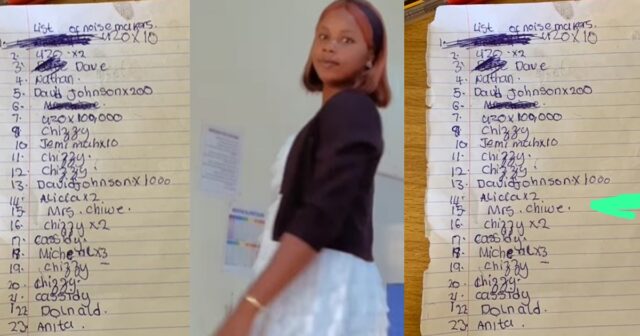 List of noise makers.
1. 420x10
2. 420 .x2
3. Dave
4. Nathan.
5. David Johnsonx200
6.
7. 420x100,000
8 Chizzy
10 Jemimahx10
11 Chizzy.
12 Chizzy.
13. DavidJohnsonx1000
14. Aliciax2
15. Mrs. Chiwe.
16. Chizzy x2
17. Cassidy.
18. Michealx3
19. Chizzy
20. Chizzy.
21. Cassidy
22 Dolnald.
23. Anita.
List of noise makers.
1. 420x10
2. 420 .x2
3. Dave
4. Nathan.
5. David Johnsonx200
6.
7. 420x100,000
8 Chizzy
10 Jemimahx10
11 Chizzy.
12 Chizzy.
13. DavidJohnsonx1000
14. Aliciax2
15. Mrs. Chiwe.
16. Chizzy x2
17. Cassidy.
18. Michealx3
19. Chizzy
20. Chizzy.
21. Cassidy
22 Dolnald.
23. Anita.